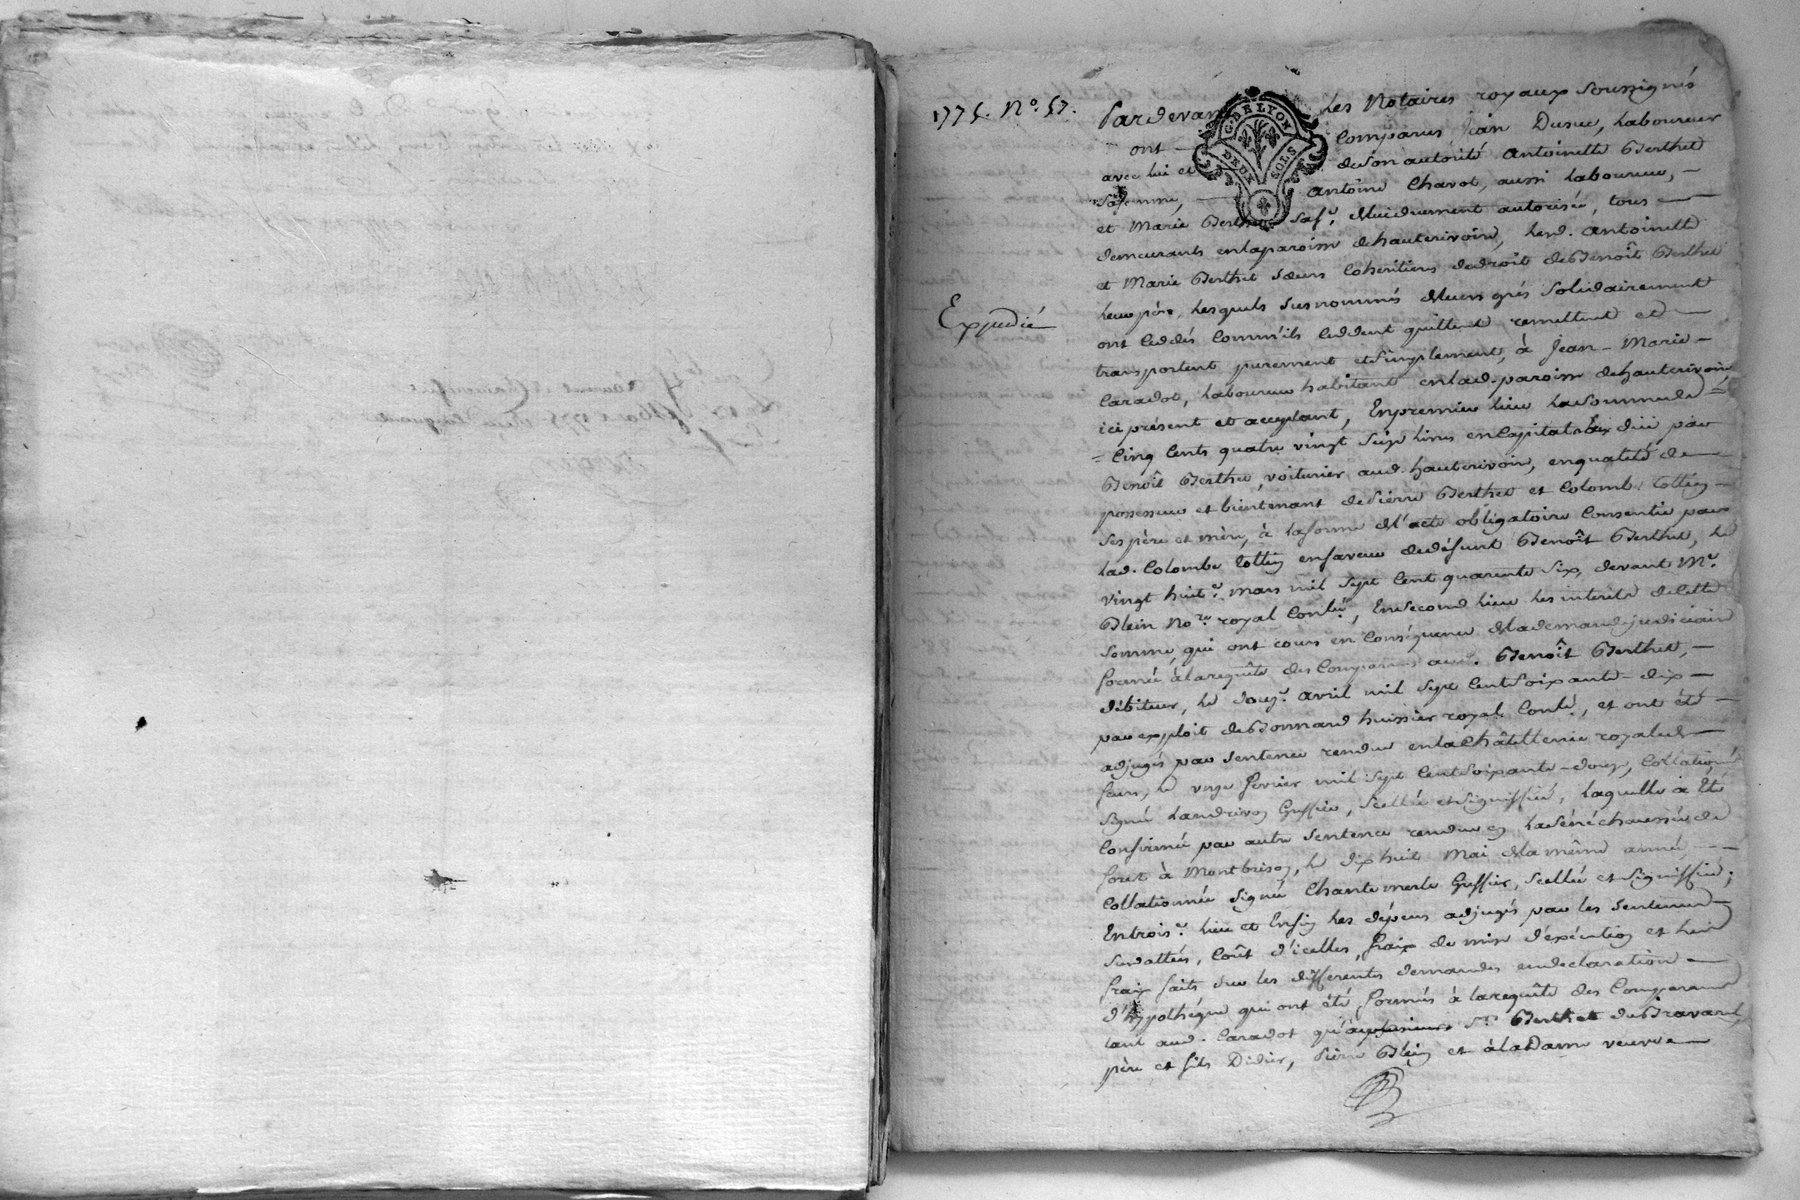 1775. N.° 57.
Expedié
G. DE LYON
DEUX SOLS
Pardevant les Notaires royaux soussignés
ont comparus Jean Dusuc, laboureur
avec lui et de son autorité Antoinette Berthet
sa femme, Antoine Chavot, aussi laboureur,
et Marie Berthet sa f.e de lui duement autorisée, tous
demeurants en la paroisse de hauterivoire, lesd. Antoinette
et Marie Berthet sœurs coheritieres de droit de Benoît Berthet
leur père, lesquels susnommés de leurs grés solidairement
ont ceddés comm'ils ceddent quittent remettent et
transportent purement et simplement, à Jean-Marie
Caradot, laboureur habitant en lad. paroisse de hauterivoire,
ici présent et acceptant, En premier lieu la somme de
Cinq Cents quatre vingt six livres en Capital due par
Benoît Berthet, voiturier aud. hauterivoire, en qualité de
possesseur et bientenant de Pierre Berthet et Colombe
ses père et mère, à la forme de l'acte obligatoire Consentie par
lad. Colombe en faveur dud. défunt Benoît Berthet, le
vingt huit.e mars mil sept cent quarante six, devant M.e
Blein No.re royal, En second lieu les interêts de cette
somme, qui ont cours en conséquence de la demande judiciaire
formée à la requête des Comparants aud. Benoît Berthet,
débiteur, le douz.e avril mil sept cent soixante-dix
par exploit de Bonnand huissier royal, et ont été
adjugés par sentence rendue en la Châtellenie royale de
feurs, le vingt fevrier mil sept cent soixante-douze, Collationné
signé Landrivon Greffier, scellée et signiffiée, laquelle a Eté
Confirmée par autre sentence rendue en la sénéchaussée de
forez à Montbrison, le dix huit Mai de la même année
Collationnée signé Chantemerle Greffier, scellée et signiffiée;
En trois.e lieu et Enfin les dépens adjugés par les sentences
susdattées, Coût d'icelles, fraix de mise d'exécution et
fraix faits sur les differentes demandes en declaration
d'hypothéque qui ont été formées à la requête des Comparants
tant aud. Caradot qu'a S.rs Berthet du Bravard
père et fils Didier, Pierre Blein et à la Dame veuve